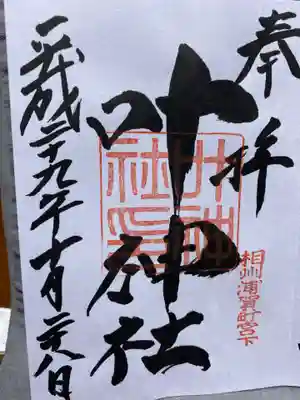 奉拝
叶神社
叶神社印
相州浦賀町宮下
平成二十九年十月二八日